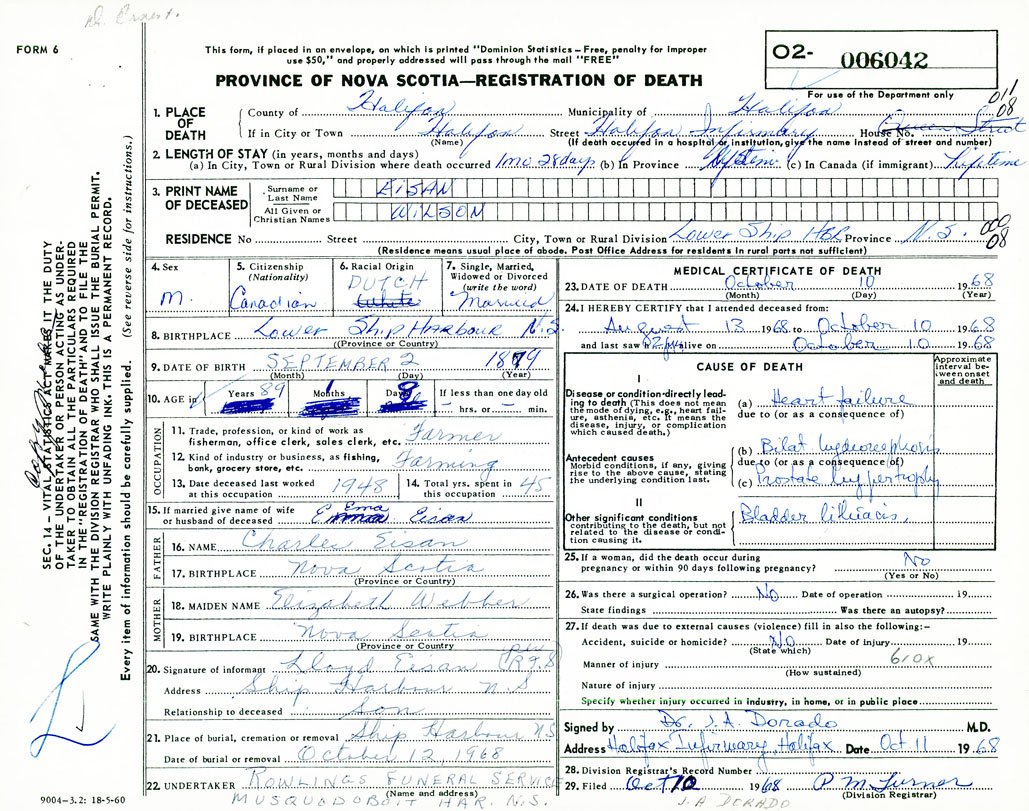 FORM 6
This form, if placed in an envelope, on which is printed "Dominion Statistics – Free, penalty for improper
use $50," and properly addressed will pass through the mail "FREE"
PROVINCE OF NOVA SCOTIA—REGISTRATION OF DEATH
02- 006042
For use of the Department only
011
08
1. PLACE OF DEATH
County of Halifax Municipality of Halifax
If in City or Town Halifax Street Halifax Infirmary House No. Queen Street
(Name) (If death occurred in a hospital or institution, give the name instead of street and number)
2. LENGTH OF STAY (in years, months and days)
(a) In City, Town or Rural Division where death occurred 1 mo 28 days (b) In Province lifetime (c) In Canada (if immigrant) lifetime
3. PRINT NAME OF DECEASED
Surname or Last Name EISAN
All Given or Christian Names WILSON
RESIDENCE No Street City, Town or Rural Division Lower Ship HBR Province N.S.
000
08
(Residence means usual place of abode. Post Office Address for residents in rural parts not sufficient)
4. Sex M.
5. Citizenship (Nationality) Canadian
6. Racial Origin DUTCH White
7. Single, Married, Widowed or Divorced (write the word) Married
8. BIRTHPLACE Lower Ship Harbour N.S.
(Province or Country)
9. DATE OF BIRTH SEPTEMBER 2 1879
(Month) (Day) (Year)
10. AGE in Years 89 Months 1 Days 8 If less than one day old
hrs. or – min.
OCCUPATION
11. Trade, profession, or kind of work as
fisherman, office clerk, sales clerk, etc. Farmer
12. Kind of industry or business, as fishing,
bank, grocery store, etc. Farming
13. Date deceased last worked
at this occupation 1948
14. Total yrs. spent in
this occupation 45
15. If married give name of wife
or husband of deceased Ema Eisan
FATHER
16. NAME Charles Eisan
17. BIRTHPLACE Nova Scotia
(Province or Country)
MOTHER
18. MAIDEN NAME Elizabeth Webber
19. BIRTHPLACE Nova Scotia
(Province or Country
20. Signature of informant Lloyd Eisan
Address Ship Harbour N.S
Relationship to deceased Son
21. Place of burial, cremation or removal Ship Harbour NS
Date of burial or removal October 12, 1968
22. UNDERTAKER ROWLINGS FUNERAL SERVICE
(Name and address)
MUSQUODOBOIT HAR. N.S.
MEDICAL CERTIFICATE OF DEATH
23. DATE OF DEATH October 10 1968
(Month) (Day) (Year)
24. I HEREBY CERTIFY that I attended deceased from:
August 13 1968 to October 10 1968
and last saw alive on October 10 1968
CAUSE OF DEATH
Approximate interval between onset and death
I
Disease or condition directly leading to death (This does not mean the mode of dying, e.g., heart failure, asthenia, etc. It means the disease, injury, or complication which caused death.)
(a) Heart failure
due to (or as a consequence of)
Antecedent causes
Morbid conditions, if any, giving rise to the above cause, stating the underlying condition last.
(b) Bilat hydronephrosis
due to (or as a consequence of)
(c) Prostate hypertrophy
II
Other significant conditions
contributing to the death, but not related to the disease or condition causing it.
Bladder
25. If a woman, did the death occur during
pregnancy or within 90 days following pregnancy? No
(Yes or No)
26. Was there a surgical operation? No Date of operation 19
State findings Was there an autopsy?
27. If death was due to external causes (violence) fill in also the following:–
Accident, suicide or homicide? No Date of injury 19
(State which)
610X
Manner of injury
(How sustained)
Nature of injury
Specify whether injury occurred in industry, in home, or in public place
Signed by Dr. J. A. Dorado M.D.
Address Halifax Infirmary, Halifax Date Oct 11 1968
28. Division Registrar's Record Number
29. Filed Oct 10 1968 P M Turner
(Division Registrar)
J.A DORADO
SEC. 14 – VITAL STATISTICS ACT MAKES IT THE DUTY
OF THE UNDERTAKER OR PERSON ACTING AS UNDER-
TAKER TO OBTAIN ALL THE PARTICULARS REQUIRED
IN THE "REGISTRATION OF DEATH" AND TO FILE THE
SAME WITH THE DIVISION REGISTRAR WHO SHALL ISSUE THE BURIAL PERMIT.
WRITE PLAINLY WITH UNFADING INK. THIS IS A PERMANENT RECORD.
Every item of information should be carefully supplied. (See reverse side for instructions.)
9004–3.2: 18-5-60